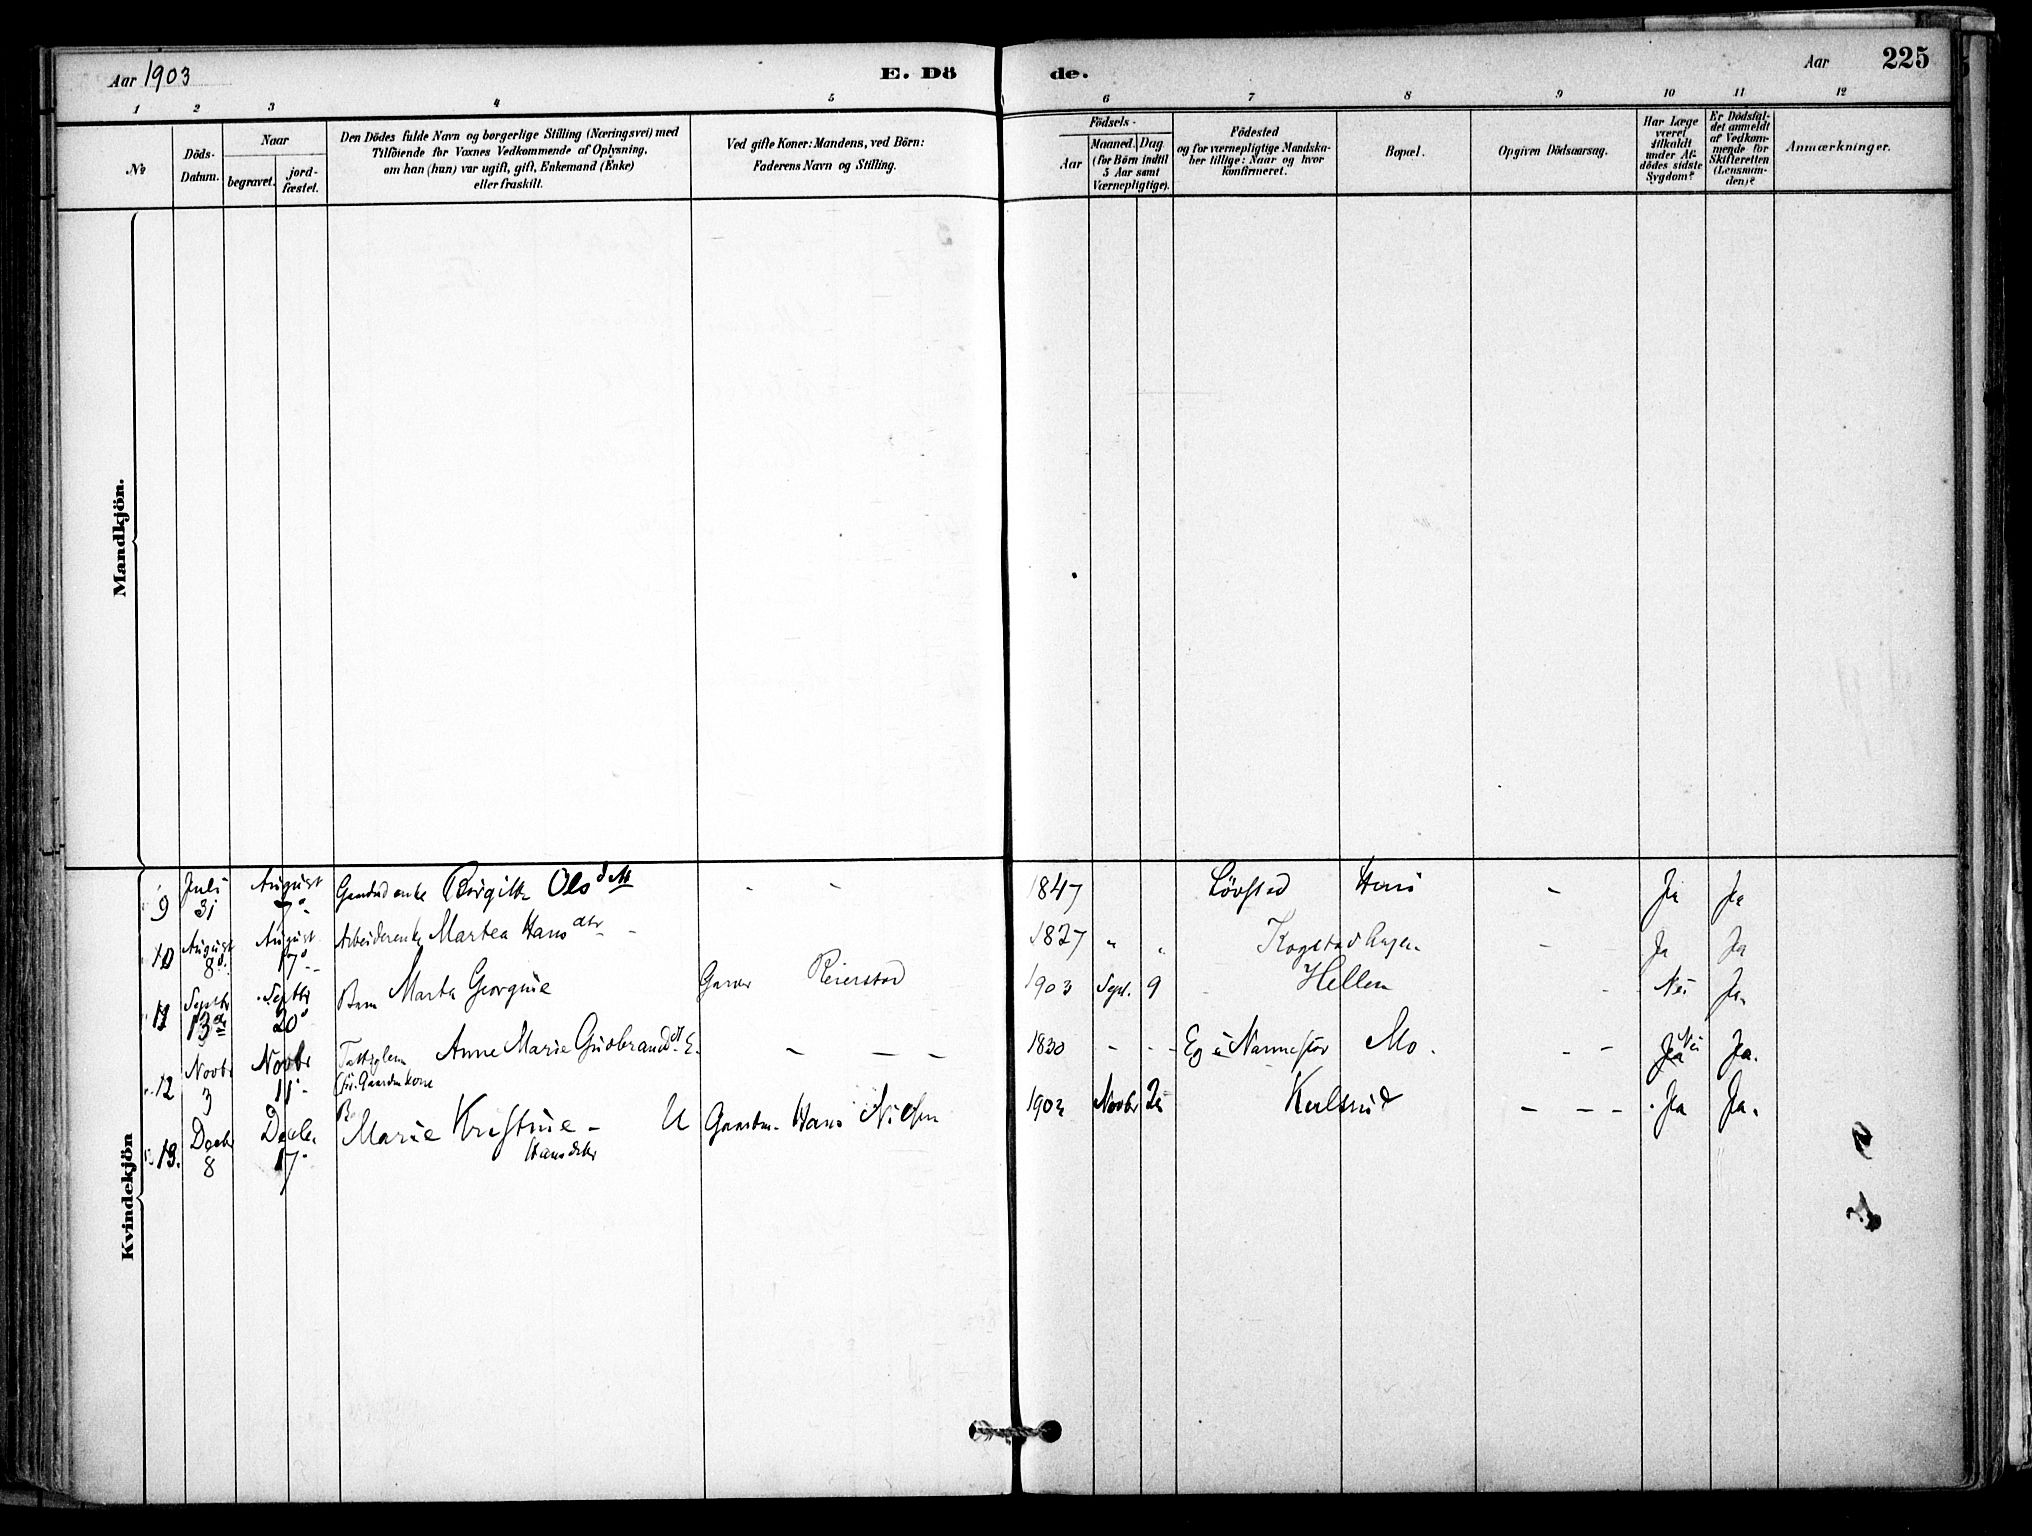 Aar 1903
E. Dö
de.
Aar
225
1 2 3 4 5 6 7 8 9 10 11 12
No
Döds-
Datum.
Naar
begravet.
jord-
fæstet.
Den Dödes fulde Navn og borgerlige Stilling (Næringsvei) med
Tilföiende for Voxnes Vedkommende af Oplysning,
om han (hun) var ugift, gift, Enkemand (Enke)
eller fraskilt.
Ved gifte Koner: Mandens, ved Börn:
Faderens Navn og Stilling.
Födsels-
Aar
Maaned. Dag.
(for Börn indtil
5 Aar samt
Værnepligtige).
Födested
og for værnepligtige Mandska-
ber tillige: Naar og hvor
konfirmeret.
Bopæl.
Opgiven Dödsaarsag.
Har Læge
været
tilkaldt
under Af-
dödes sidste
Sygdom?
Er Dödsfal-
det anmeldt
af Vedkom-
mende for
Skifteretten
(Lensman-
den)?
Anmærkninger.
Mandkjön.
Kvindekjön
9 Juli 31 August 7 Borgitte Olsdatt - - 1847 Lövstad - Ja Ja
10 August 8 August 17 Arbeiderenke Martea Hansdtr - 1827 " " - Ja Ja
11 Septbr 13 Septbr 20 Barn Marta Georgine Reierstad 1903 Sept. 9 Hellen - Nei Ja
12 Novbr 3 Novbr 11 Anne Marie Gudbrandsdt. E. - - - 1830 - - - Eg i Nannestad Mo. - - Ja Nei Ja.
13. Decbr 8 Decbr 17 Marie Kristine - Hansdatter U Gaardbr. Hans Nilsen Novbr - - - Ja Ja.